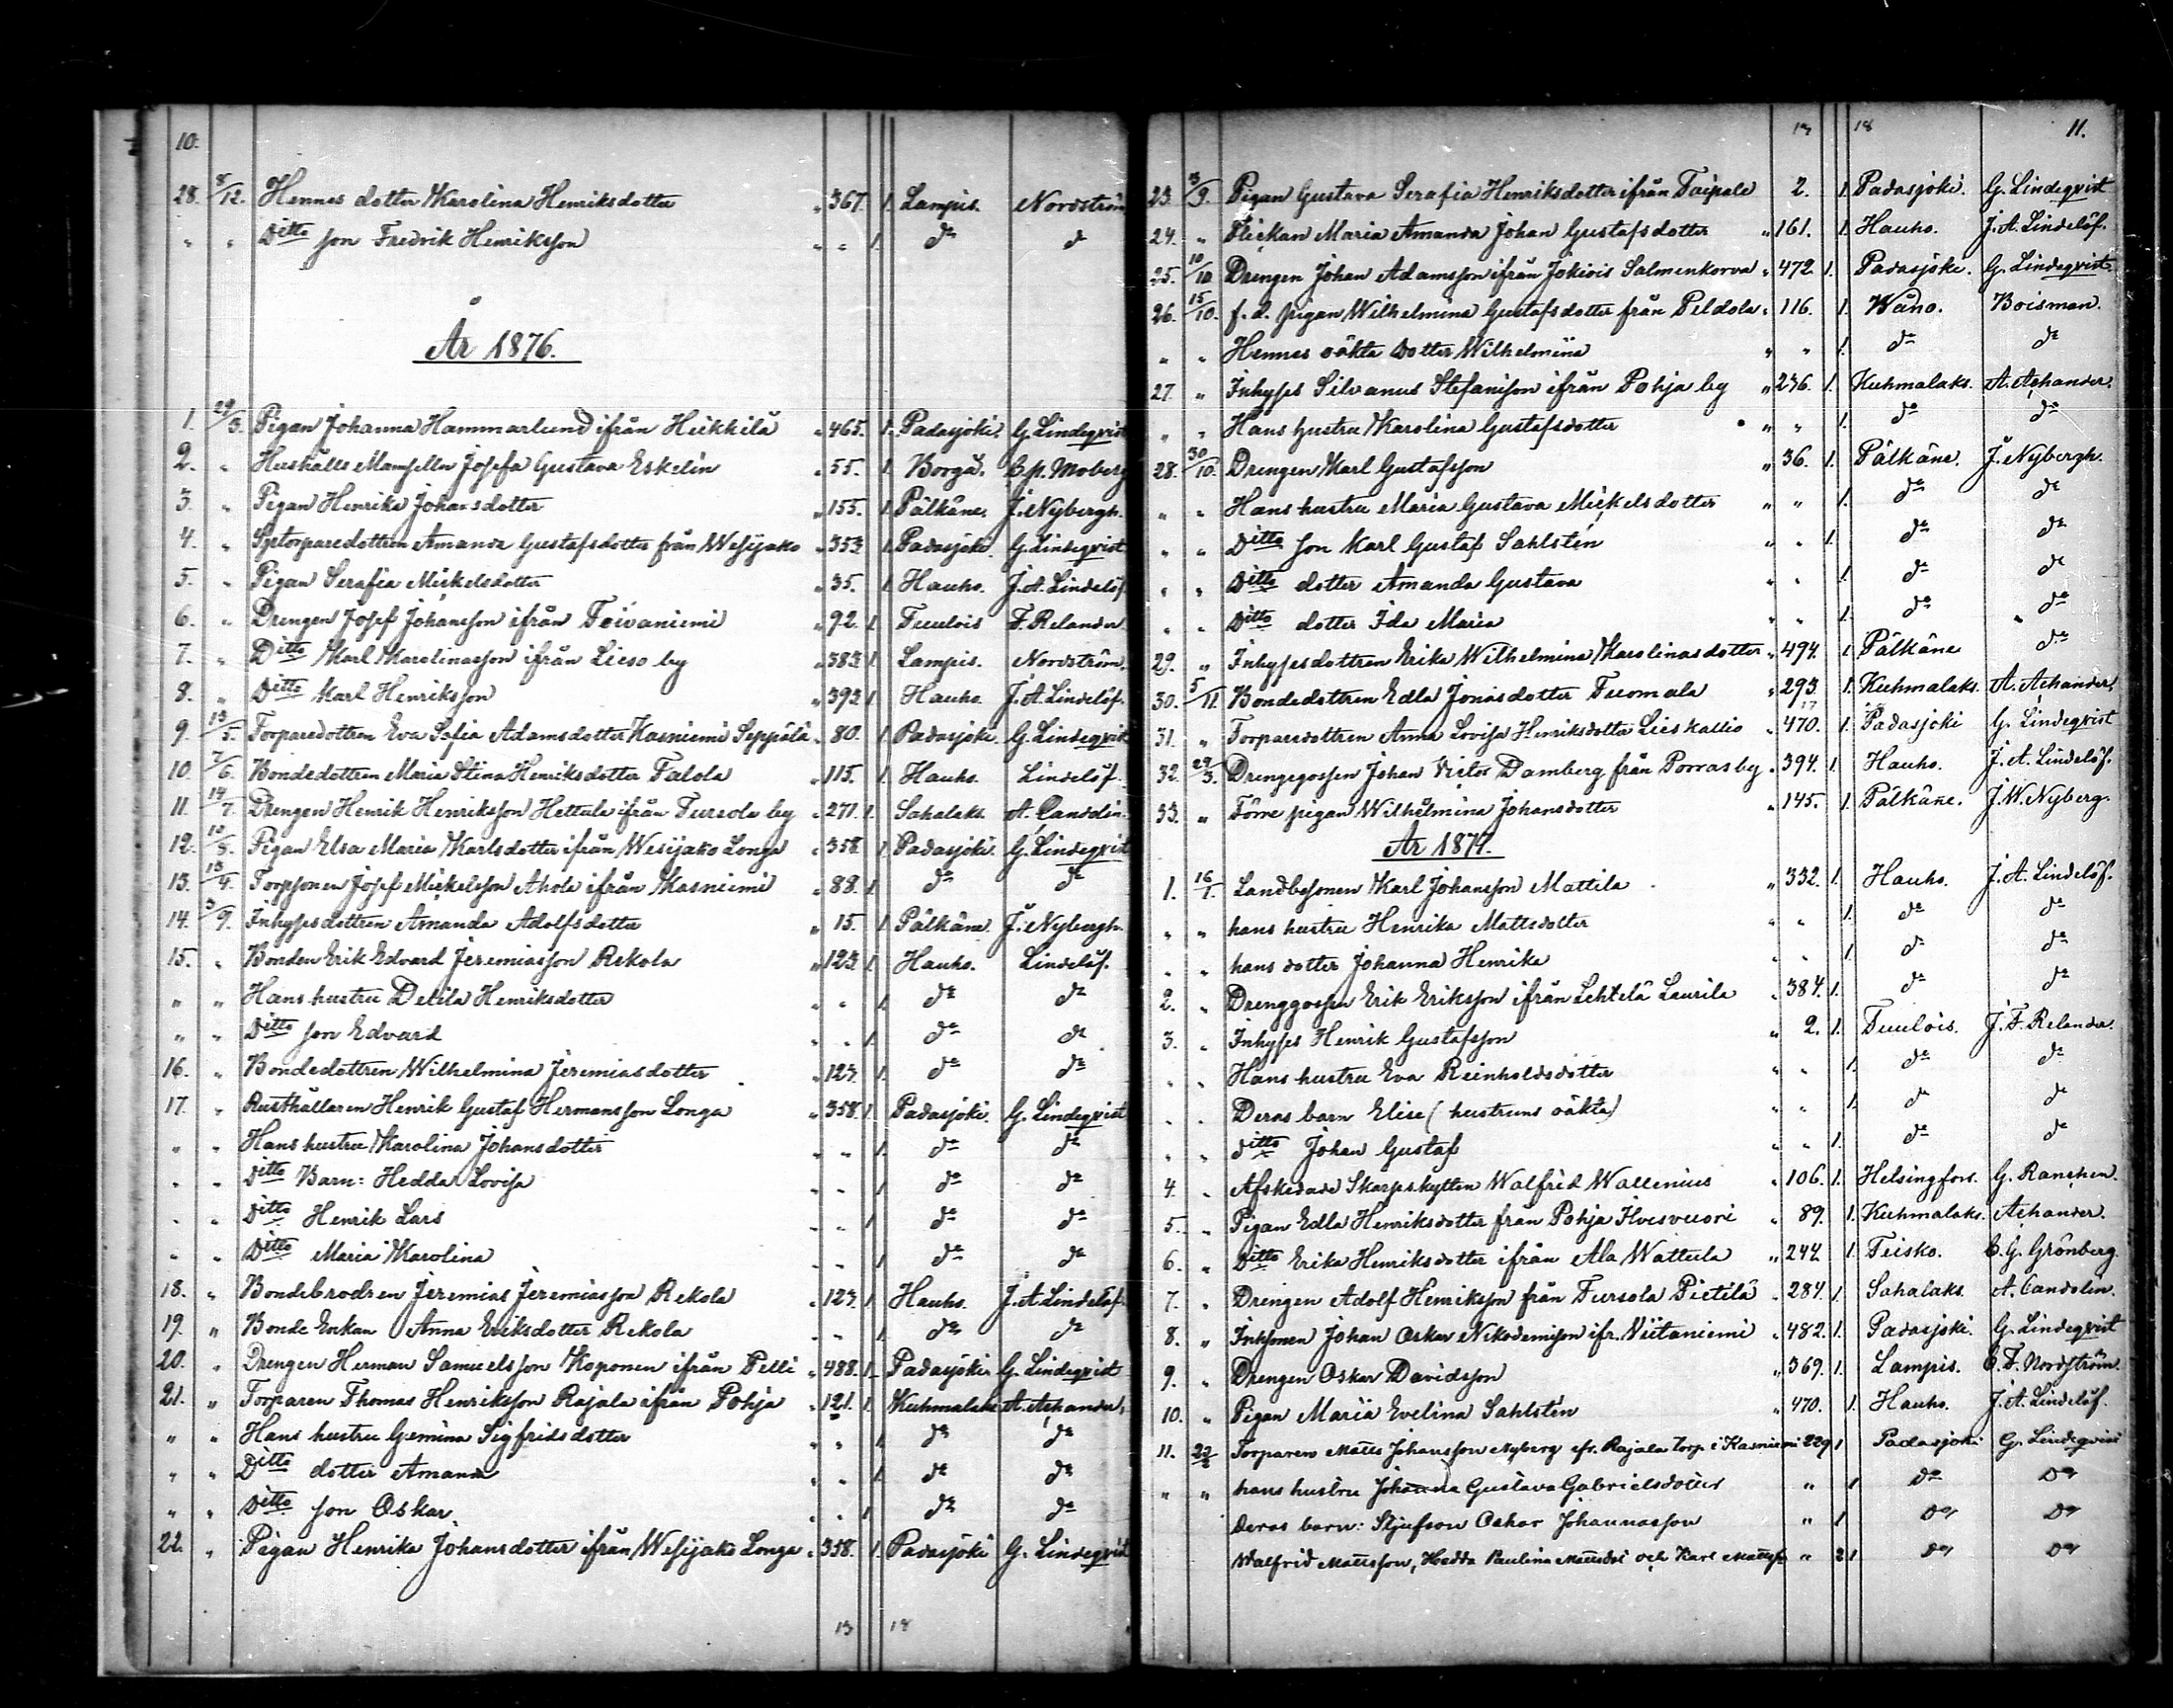 10.
28. 8/12. Hennes dotter Karolina Henriksdotter " 367. 1. Lampis. Nordström
" " Ditto son Fredrik Henriksson " " 1. do do
År 1876.
1. 29/3. Pigan Johanna Hammarlund ifrån Heikkilä " 465. 1. Padasjoki. G. Lindeqvist
2. " Hushålls Mamsellen Josefa Gustava Eskelin " 55. 1. Borgå. C. p. Moberg
3. " Pigan Henrika Johansdotter " 155. 1. Pälkäne. J. Nybergh.
4. " Sytorparedottren Amanda Gustafsdotter från Wesijako " 353 1. Padasjoki. G. Lindeqvist
5. " Pigan Serafia Mickelsdotter " 35. 1. Hauho. J. A. Lindelöf
6. " Drengen Josef Johansson ifrån Toivaniemi " 92. 1. Tuulois F. Relander.
7. " Ditto Karl Karolinasson ifrån Lieso by " 383 1. Lampis. Nordström.
8. " Ditto Karl Henriksson " 393 1. Hauho. J. A. Lindelöf.
9. 13/5. Torparedottren Eva Sofia Adamsdotter Kasniemi Seppälä " 80. 1. Padasjoki G. Lindeqvist
10. 7/6. Bondedottren Maria Stina Henriksdotter Talola " 115. 1. Hauho. Lindelöf.
11. 14/7. Drengen Henrik Henriksson Hettula ifrån Tursola by " 271. 1. Sahalaks. A. Candolin.
12. 10/8. Pigan Elsa Maria Karlsdotter ifrån Wesijako Longa " 358. 1. Padasjoki. G. Lindeqvist
13. 13/4. Torpsonen Josef Mickelsson Ahola ifrån Kasniemi " 88. 1 do do
14. 3/9. Inhysesdottren Amanda Adolfsdotter " 15. 1. Pälkäne. J. Nybergh.
15. " Bonden Erik Edvard Jeremiasson Rekola " 123. 1. Hauho. Lindelöf.
" " Hans hustru Delila Henriksdotter " " 1. do do
" " Ditto son Edvard " " 1. do do
16. " Bondedottren Wilhelmina Jeremiasdotter " 123. 1. do do
17. " Rusthållaren Henrik Gustaf Hermansson Longa " 358. 1. Padasjoki. G. Lindeqvist
" " Hans hustru Karolina Johansdotter " " 1. do do
" " Ditto Barn: Hedda Lovisa " " 1 do do
" " Ditto Henrik Lars " " 1 do do
" " Ditto Maria Karolina " " 1 do do
18. " Bondebrodren Jeremias Jeremiasson Rekola " 123. 1. Hauho. J. A. Lindelöf.
19. " Bonde Enkan Anna Eriksdotter Rekola " " 1. do do
20. " Drengen Herman Samuelsson Koponen ifrån Pelli " 488. 1. Padasjoki. G. Lindeqvist
21. " Torparen Thomas Henriksson Rajala ifrån Pohja " 121. 1. Kuhmalaks A. Ashander.
" " Hans hustru Gemina Sigfridsdotter " " 1. do do
" " Ditto dotter Amanda " " 1. do do
" " Ditto son Oskar. " " 1 do do
22. " Pigan Henrika Johansdotter ifrån Wesijako Longa " 358. 1. Padasjoki G. Lindeqvist
13 18
18 11.
23. 3/9. Pigan Gustava Serafia Henriksdotter ifrån Taipale 2. 1. Padasjoki. G. Lindeqvist
24. " Flickan Maria Amanda Johan Gustafsdotter " 161. 1. Hauho. J. A. Lindelöf.
25. 10/10 Drengen Johan Adamsson ifrån Jokiois Salmenkorva " 472. 1. Padasjoki. G. Lindeqvist.
26. 15/10. f. d. pigan Wilhelmina Gustafsdotter från Peldola " 116. 1. Wånå. Boisman.
" " Hennes oäkta dotter Wilhelmina " " 1. do do
27. " Inhyses Silvanus Stefansson ifrån Pohja by " 236. 1. Kuhmalaks. A. Ashander.
" " Hans hustru Karolina Gustafsdotter " " 1. do do
28. 30/10. Drengen Karl Gustafsson " 36. 1. Pälkäne. J. Nybergh.
" " Hans hustru Maria Gustava Mickelsdotter " " 1. do do
" " Ditto son Karl Gustaf Sahlstén " " 1. do do
" " Ditto dotter Amanda Gustava " " 1. do do
" " Ditto dotter Ida Maria " " 1. do do
29. " Inhysesdottren Erika Wilhelmina Karolinasdotter " 494. 1. Pälkäne do
30. 5/11. Bondedottren Edla Jonasdotter Tuomala " 293. 1. Kuhmalaks. A. Ashander.
31. " Torparedottren Anna Lovisa Henriksdotter Lieskallio " 470. 1. Padasjoki G. Lindeqvist
32. 29/3. Drenggossen Johan Victor Damberg från Porras by " 394. 1. Hauho. J. A. Lindelöf.
33. " Förre pigan Wilhelmina Johansdotter " 145. 1. Pälkäne. J. W. Nyberg.
År 1877.
1. 16/1. Landbosonen Karl Johansson Mattila " 332. 1. Hauho. J. A. Lindelöf.
" " hans hustru Henrika Mattsdotter " " 1. do do
" " hans dotter Johanna Henrika " " 1. do do
2. " Drenggossen Erik Eriksson ifrån Lehtelä Laurila " 384. 1. do do
3. " Inhyses Henrik Gustafsson " 2. 1. Tuulois. J. F. Relander.
" " Hans hustru Eva Reinholdsdotter " " 1. do do
" " Deras barn Elise (hustruns oäkta) " " 1. do do
" " ditto Johan Gustaf " " 1. do do
4. " Afskedade Skarpskytten Walfrid Wallenius " 106. 1. Helsingfors. G. Rancken.
5. " Pigan Edla Henriksdotter från Pohja Ilvesvuori " 89. 1. Kuhmalaks. Ashander.
6. " Ditto Erika Henriksdotter ifrån Ala Wattula " 244. 1. Teisko. C. G. Grönberg
7. " Drengen Adolf Henriksson från Tursola Pietilä " 284. 1. Sahalaks. A. Candolin.
8. " Inhsonen Johan Oskar Nikodemsson ifr. Niitaniemi " 482. 1. Padasjoki. G. Lindeqvist
9. " Drengen Oskar Davidsson " 369. 1. Lampis. C. F. Nordström.
10. " Pigan Maria Evelina Sahlstén " 470. 1. Hauho. J. A. Lindelöf.
11. 22/2 Torparen Matts Johansson Nyberg ifr. Rajala Torp i Kasniemi 229 1 Padasjoki G. Lindeqvist
" " hans hustru Johanna Gustava Gabrielsdotter " 1 Do Do
Deras barn: Stjufson Oskar Johannasson " 1 Do Do
Walfrid Mattsson, Hedda Paulina Mattsdr och Karl Mattss. " 2 1 Do Do